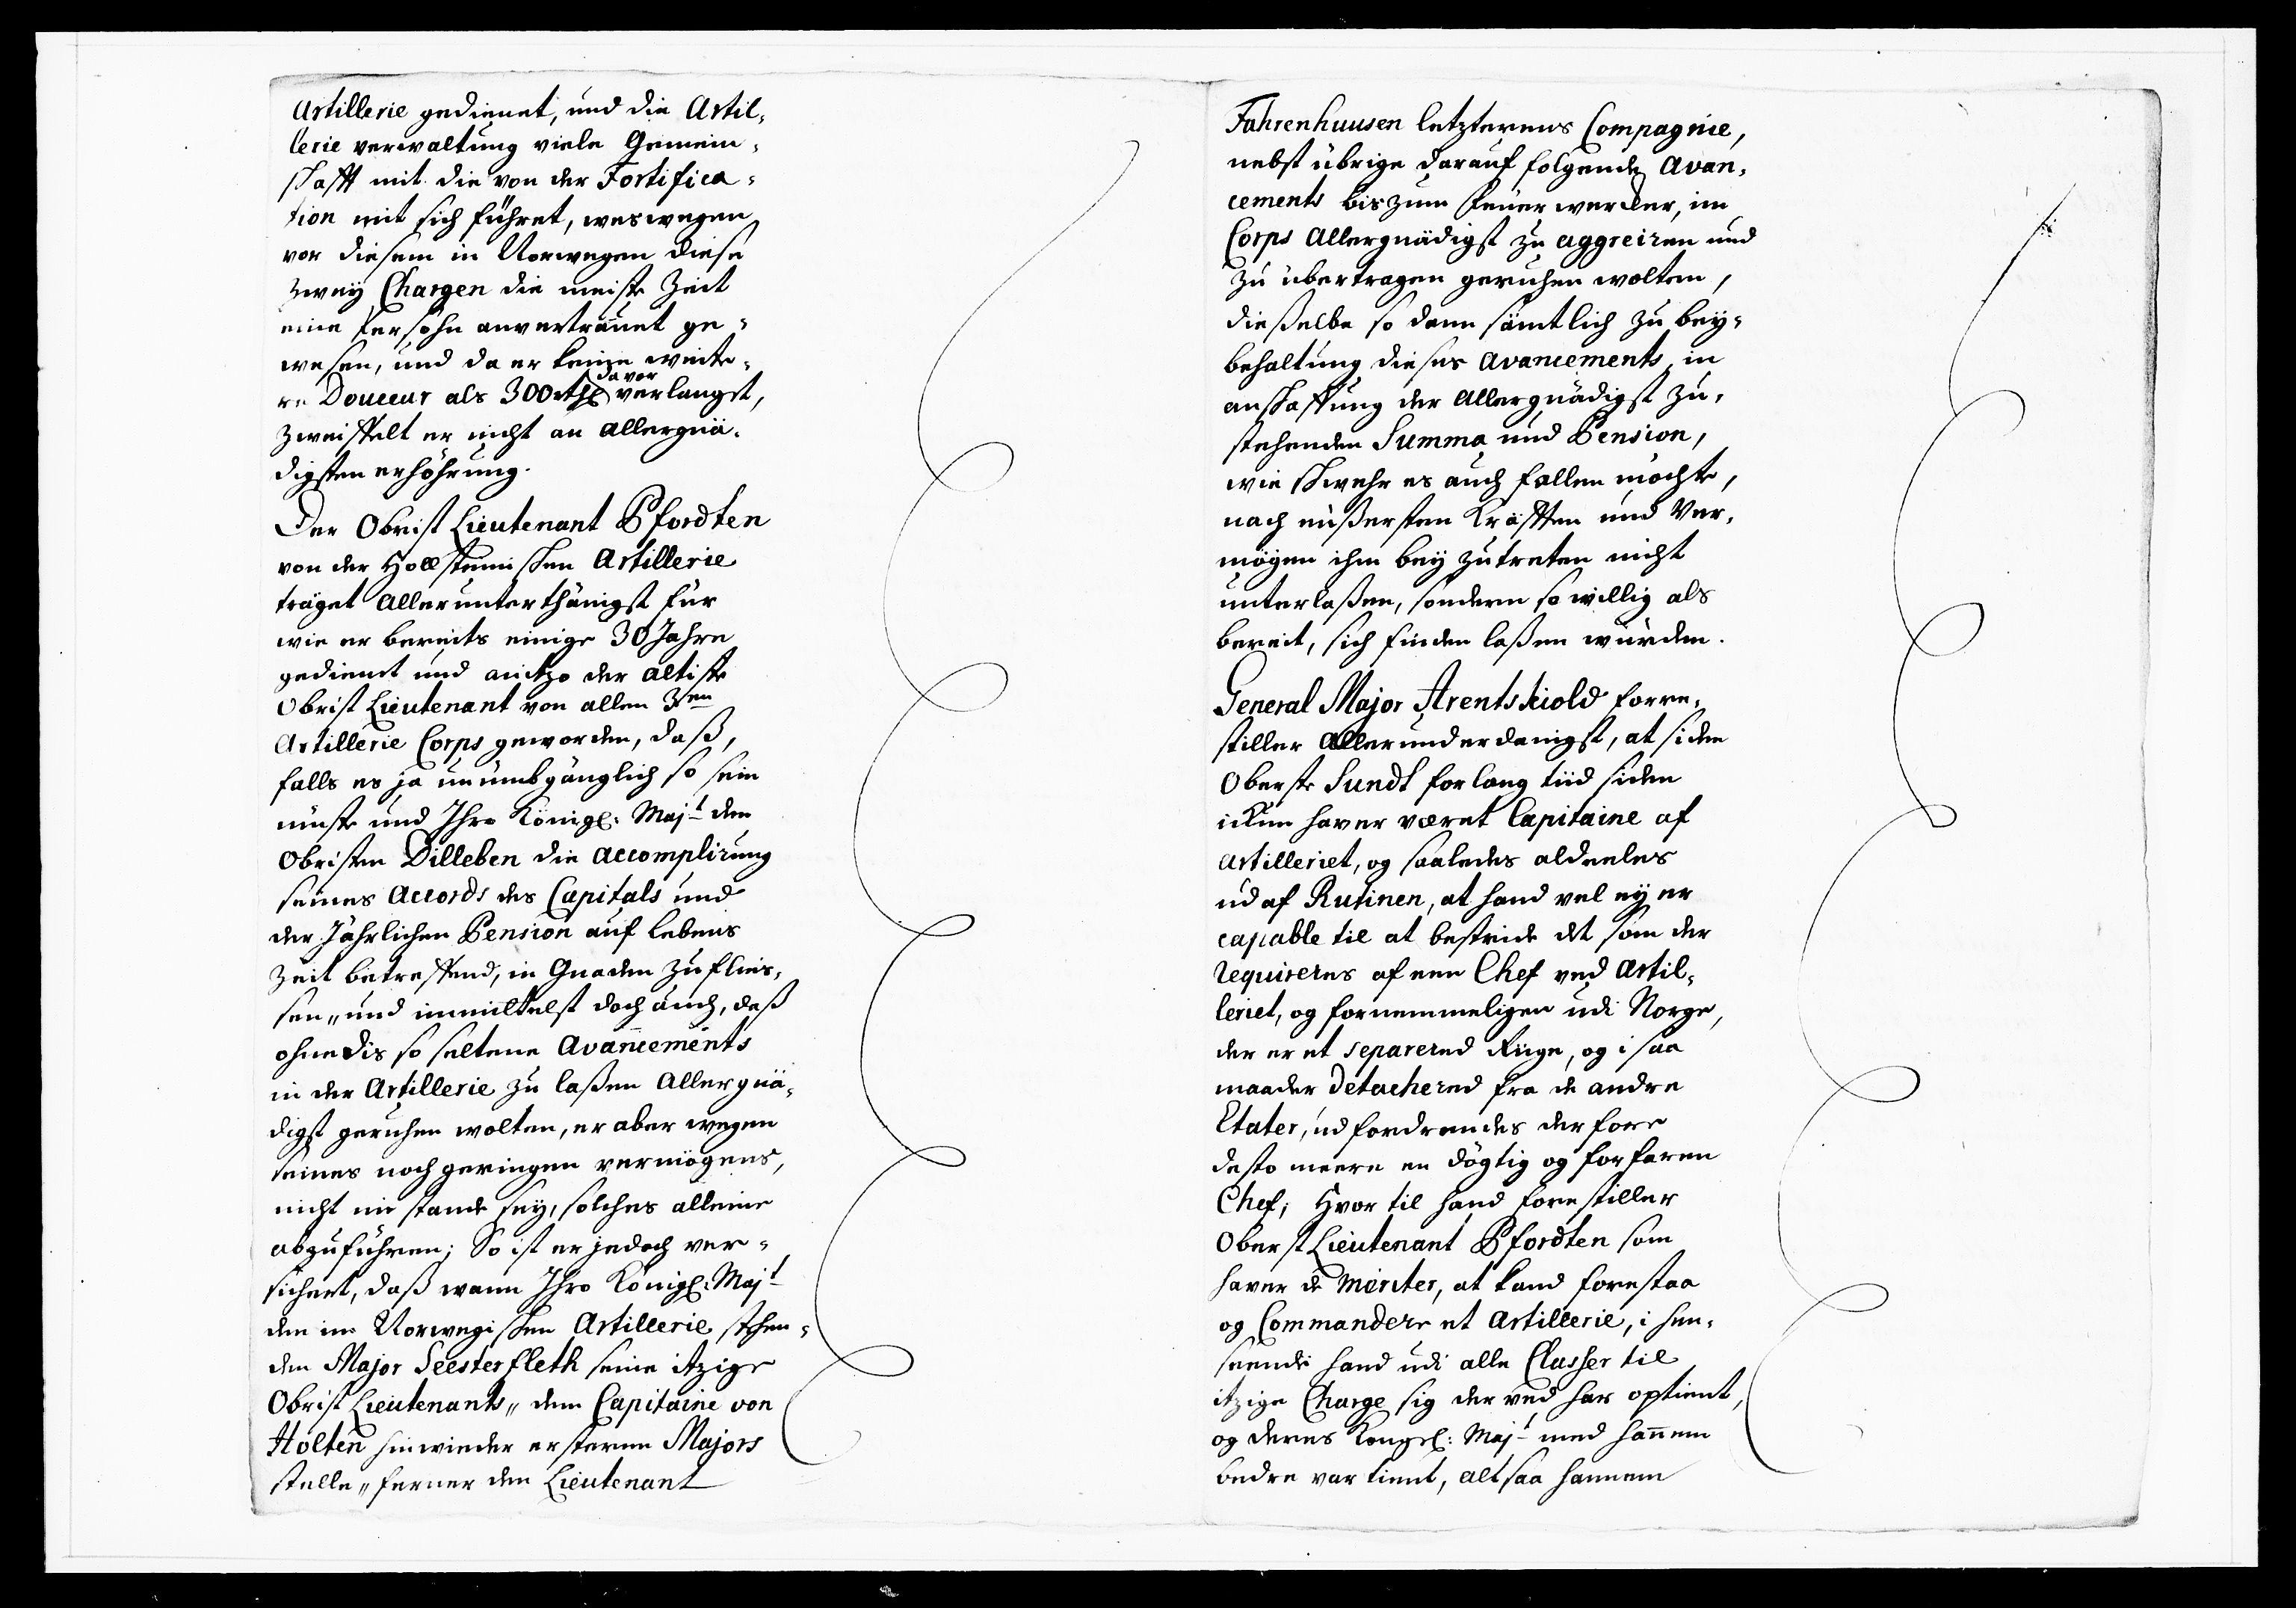 Artillerie gedienet, und die Artil¬
lerie verwaltung viele Gemein¬
schafft mit die von der Fortifica¬
tion mit sich führet, weswegen
vor diesem in Norwegen diese
zweÿ Chargen die meiste Zeit
eine Persohn anvertrauet ge¬
wesen, und da er keine weite¬
re Douceur als 300 rthl davor verlangt,
zweiffelt er nicht an Allergnä¬
digsten erhöhrung.
Der Obrist Lieutenant Pfordten
von der Hollsteinischen Artillerie
träget Allerunterthänigst für
wie er bereits einige 30 Jahre
gedient und anitzo der altiste
Obrist Lieutenant von allen 3en
Artillerie Corps geworden, daß,
falls es ja unumbgänglich so sein
müste und Ihro Königl: Majt den
Obristen Dilleben die accomplirung
seines Accords des Capitals und
der Jährlichen Pension auf Lebens
Zeit betreffend, in Gnaden zu flies¬
sen, und immittelst doch auch, daß
ohne dis so seltene Avancements
in der Artillerie zu laßen Allergnä¬
digst geruhen wolten, er aber wegen
seines noch geringen vermögens,
nicht im stande seÿ, solches alleine
abzuführen; So ist er jedoch ver¬
sichert, daß wann Ihro Königl: Majt
den im Norwegischen Artillerie stehen¬
den Major Seesterfleth seine itzige
Obrist Lieutenants, dem Capitaine von
Holten hinwieder ersteren Majors
stelle, ferner den Lieutenant
Fahrenhuusen letzterens Compagnie,
nebst übrige darauf folgende Avan¬
cements bis zum Feuerwercker, im
Corps Allergnädigst zu aggreiren und
zu übertragen geruhen wolten,
dieselbe so dann sämtlich zu beÿ¬
behaltung dieses Avancements, in
anschaffung der Allergnädigst zu¬
stehenden Summa und Pension,
wie schwehr es auch fallen möchte,
nach eußersten Kräfften und Ver¬
mögen ihm beÿ zutreten nicht
unterlaßen, sondern so willig als
bereit, sich finden laßen würden.
General Major Arentskiold forre¬
stiller Allerunderdanigst, at siden
Oberste Sundt for lang tiid siden
ickun haver været Capitaine af
Artilleriet, og saaledes aldeeles
ud af Rutinen, at hand vel eÿ er
capable til at bestride det som der
requireres af een Chef ved Artil¬
leriet, og fornemmeligen udi Norge,
der er et separered Riige, og i saa
maader detachered fra de andre
Etater, udfordrendes derfore
desto meere en dögtig og forfaren
Chef; Hvor til hand forestiller
Oberst Lieutenant Pfordten som
haver de meriter, at kand forestaa
og Commandere et Artillerie, i hen¬
seende hand udi alle Classer til
itzige Charge sig der ved har optient,
og deres Kongel: Majt med hannem
bedre var tient, alt saa hannem